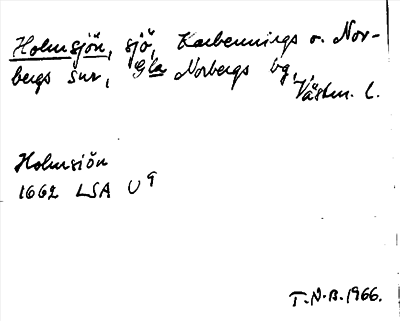 Holmsjön, sjö, Karbennings o. Nor-
bergs snr, Gla Norbergs bg,
Västm. l.
Holmsiön
1662 LSA U 9
T.N.B. 1966.